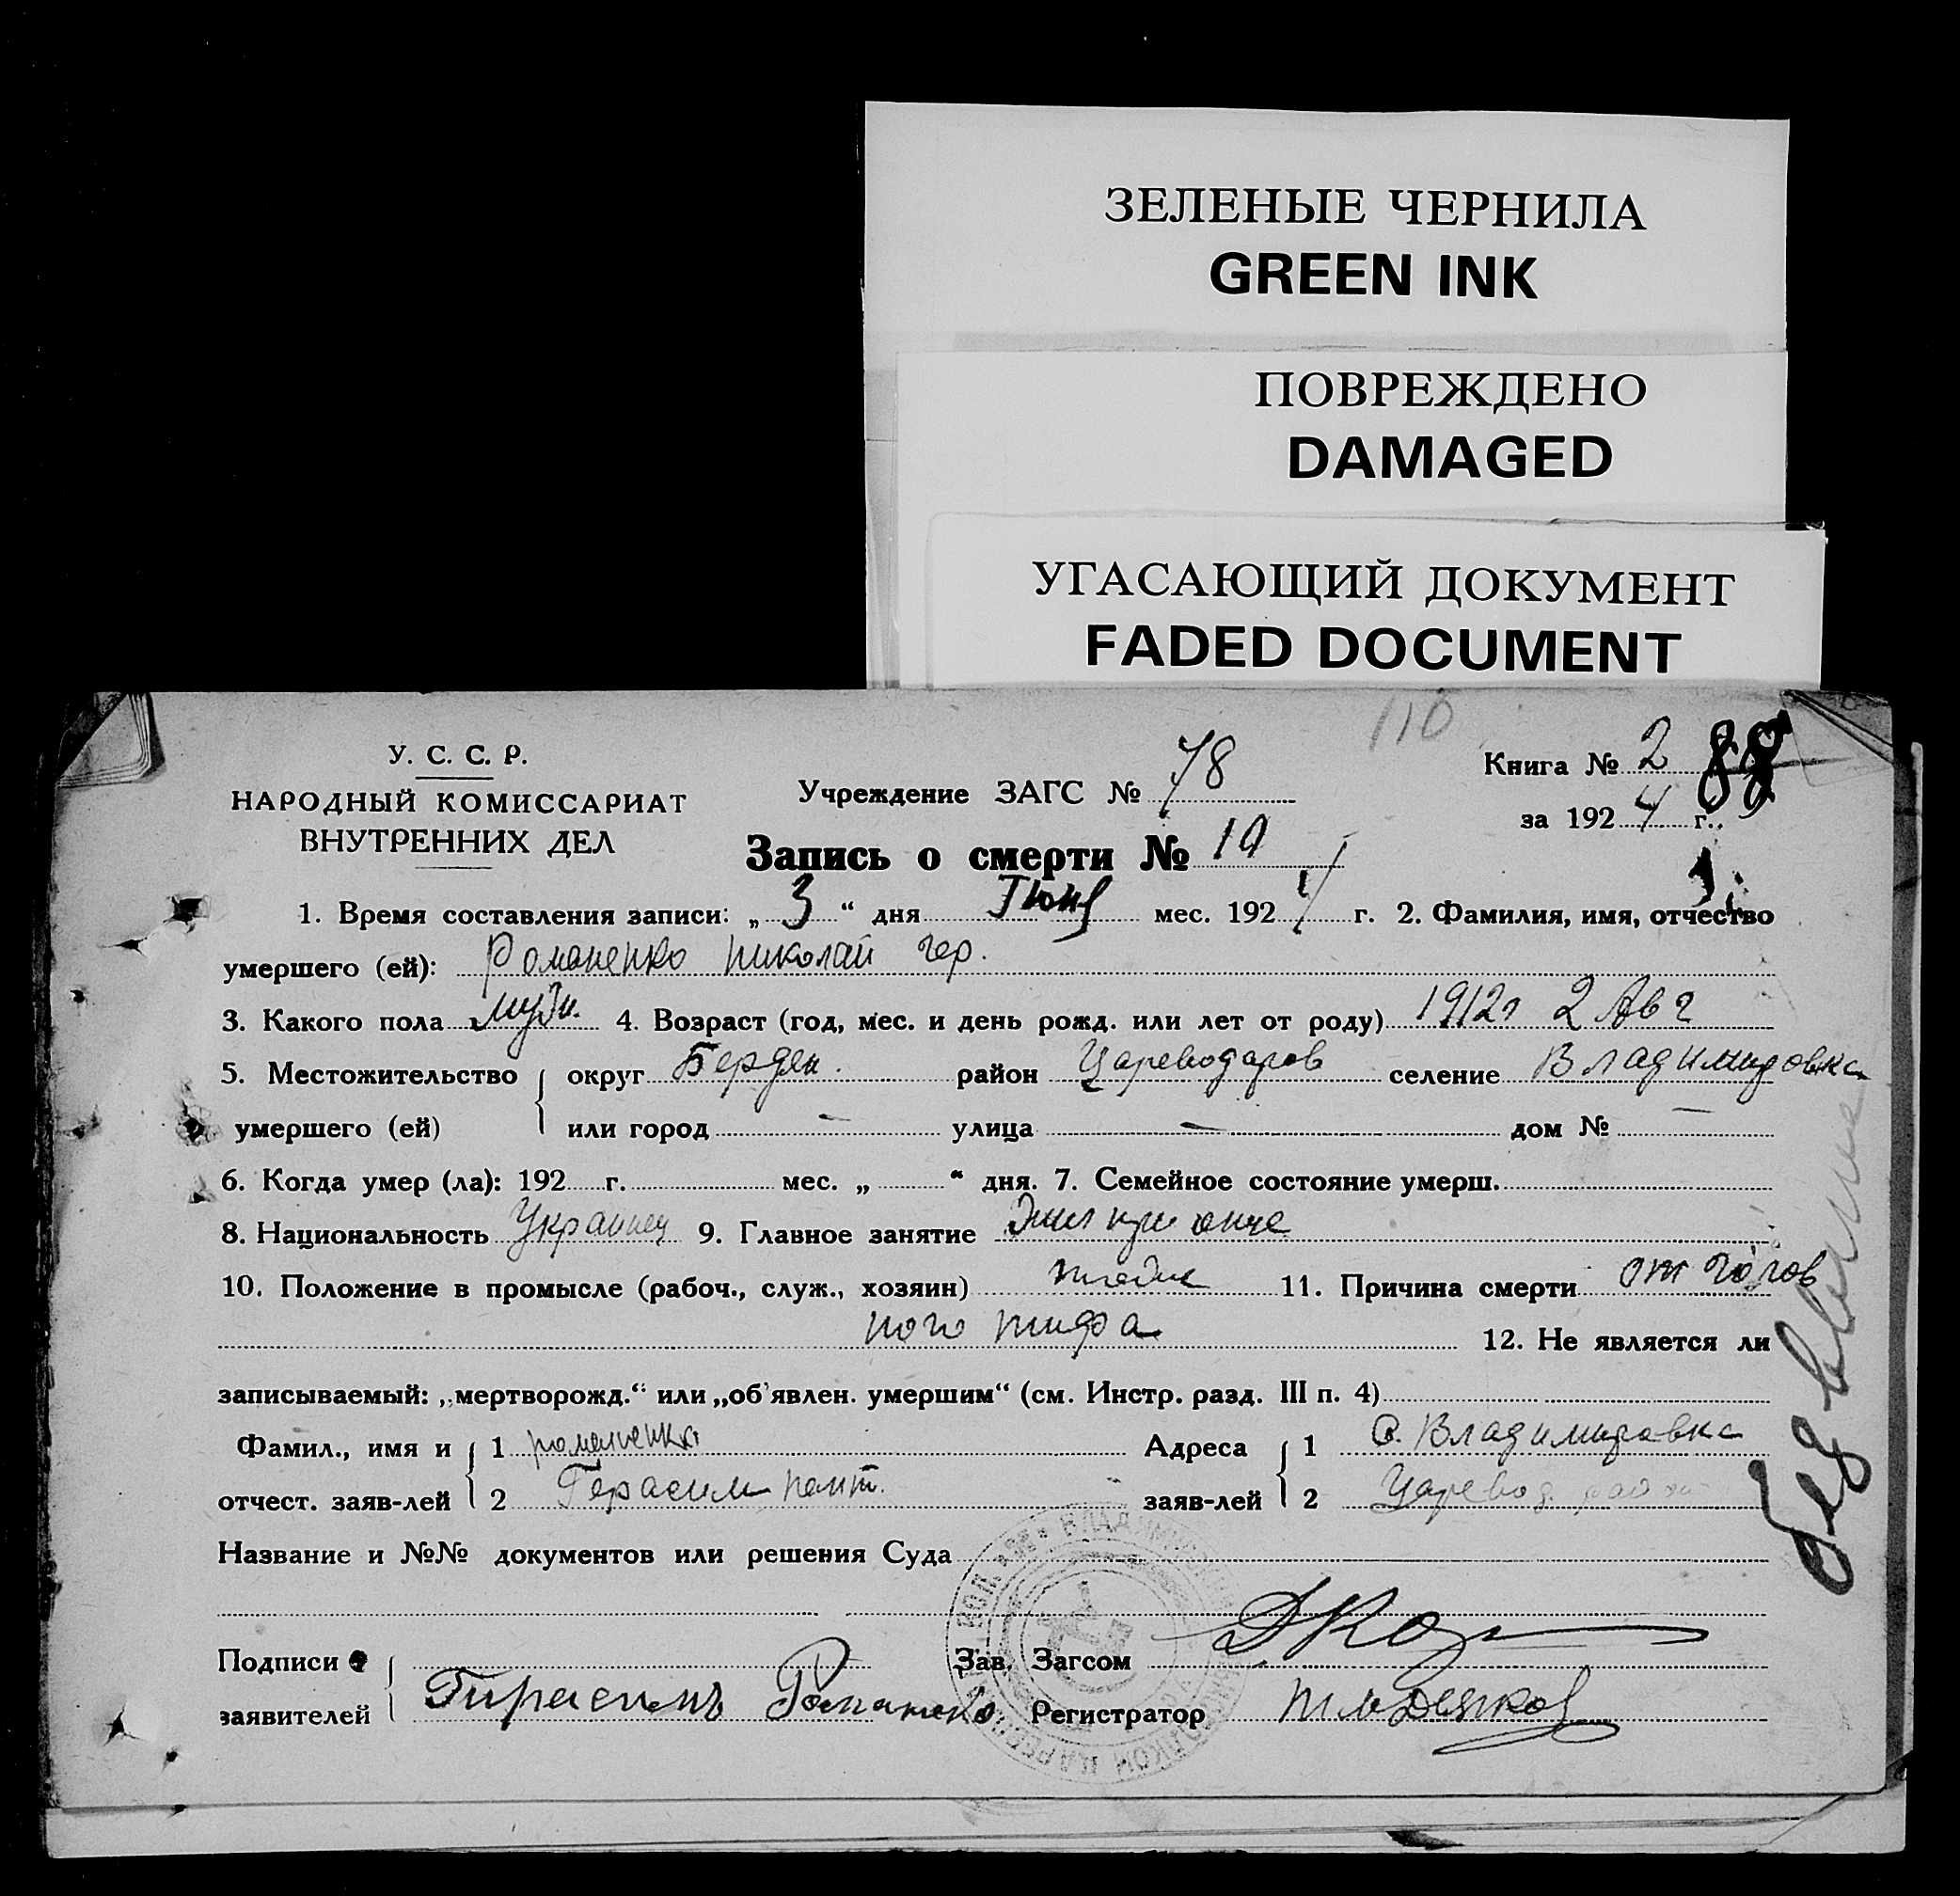 ЗЕЛЕНЫЕ ЧЕРНИЛА
GREEN INK
ПОВРЕЖДЕНО
DAMAGED
УГАСАЮЩИЙ ДОКУМЕНТ
FADED DOCUMENT
110
У. С. С. Р.
НАРОДНЫЙ КОМИССАРИАТ
ВНУТРЕННИХ ДЕЛ
Учреждение ЗАГС № 78
Книга № 2 88
за 1924 г.
Запись о смерти № 19
1. Время составления записи: „ 3 “ дня Июня мес. 1924 г. 2. Фамилия, имя, отчество
умершего (ей): Романенко николай гер.
3. Какого пола муж. 4. Возраст (год, мес. и день рожд. или лет от роду) 1912г 2 Авг
5. Местожительство округ Бердян. район Цареводаров селение Владимировка
умершего (ей) или город — улица — дом № —
6. Когда умер (ла): 192 г. мес. „ “ дня. 7. Семейное состояние умерш.
8. Национальность Украинец 9. Главное занятие Жил при отце
10. Положение в промысле (рабоч., служ., хозяин) 11. Причина смерти от голов
ного тифа 12. Не является ли
записываемый: „мертворожд.“ или „об'явлен. умершим“ (см. Инстр. разд. III п. 4)
Фамил., имя и 1 романенко Адреса 1 с. Владимировка
отчест. заяв-лей 2 Герасим заяв-лей 2 Царевод. район
Название и №№ документов или решения Суда
Подписи Зав. Загсом
заявителей Гирасемъ Романенко Регистратор